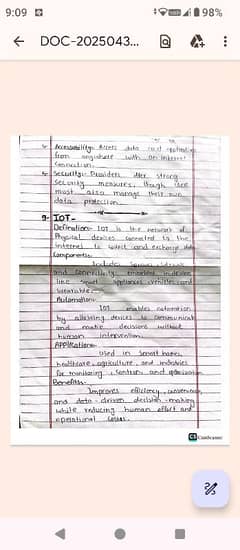 9:09
98%
DOC-2025043...
Accessibility: Access data and application
from anywhere with an internet
connection.
Security: Providers offer strong
security measures, though user
must also manage their own
data protection.
9. IOT-
Definition- IOT is the network of
Physical devices connected to the
internet to collect and exchange data
Components:
Includes
and connectivity
like smart appliances, vehicles and
wearables.
Automation:
IOT enables automation
by allowing devices to communicate
and make decisions without
human intervention.
Applications
used in smart homes,
healthcare, agriculture, and industries
for monitoring, control, and optimization
Benefits:
Improves efficiency, convenience,
and data-driven decision-making
while reducing human effort and
operational costs.
CS CamScanner